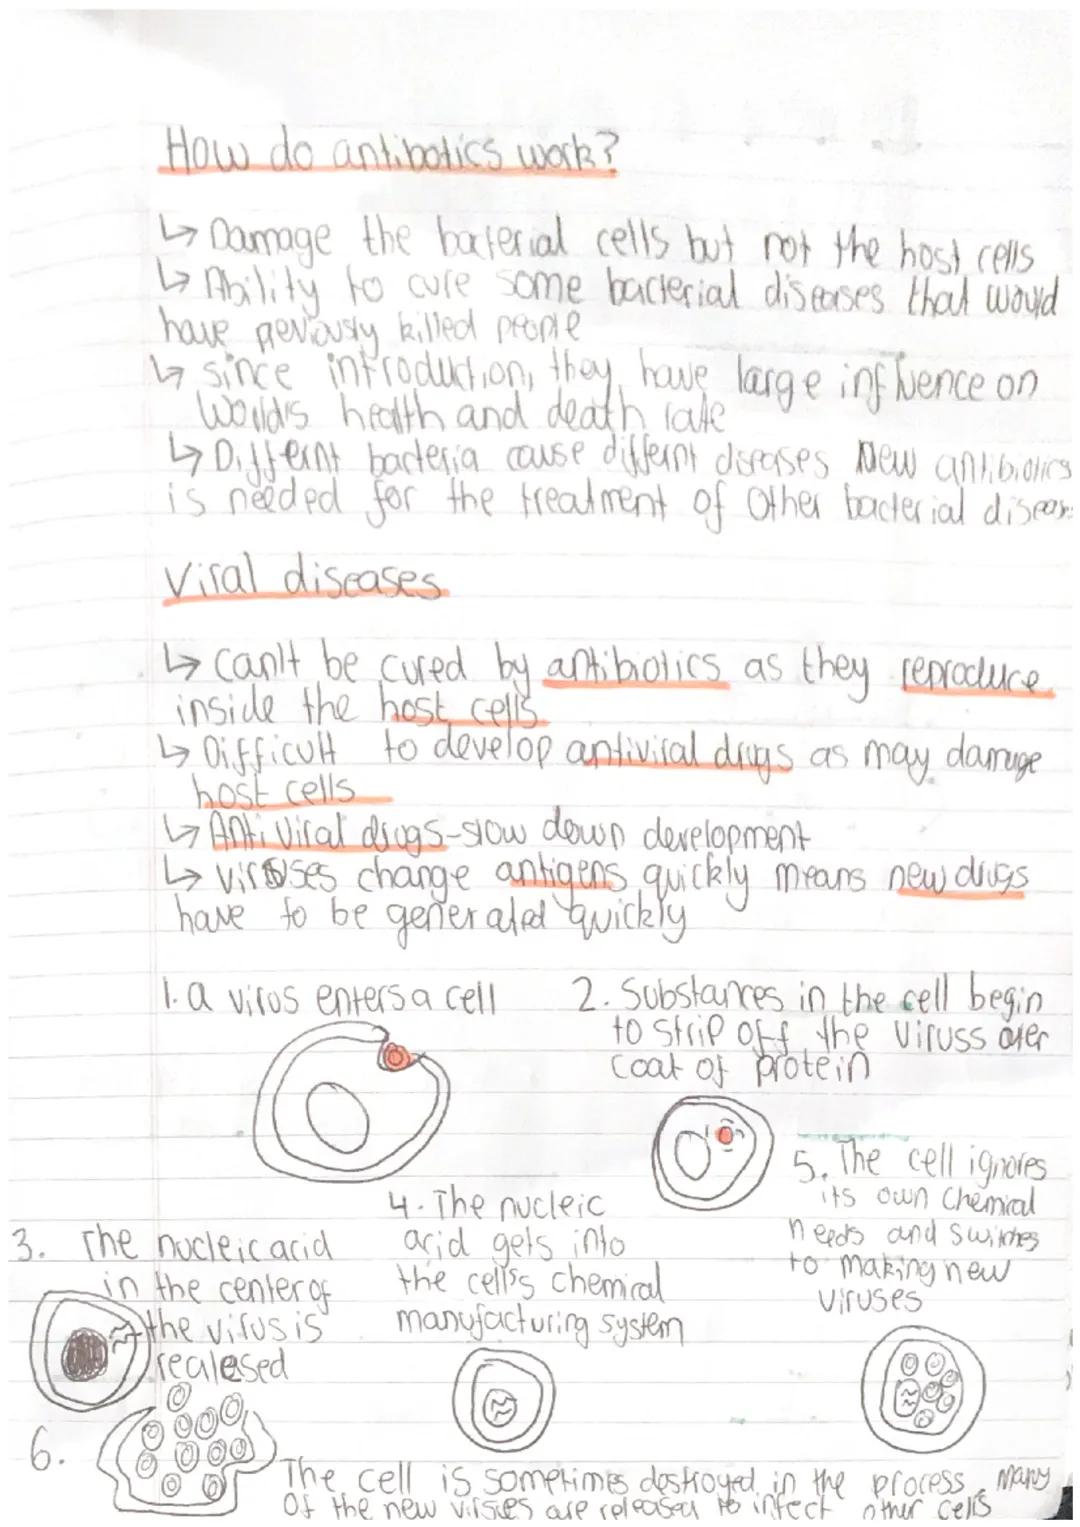 How do antibotics work?
↳ Damage the bacterial cells but not the host cells
↳ Ability to cure some bacterial diseases that would
have peviously killed people
↳ since introduction, they have large influence on
World's health and death rate
↳ Differnt bacteria cause differnt diseases New antibiotics
is needed for the treatment of other bacterial diseas
Viral diseases
↳ can't be cured by antibiotics as they reproduce
inside the host cells
↳ Difficult to develop antiviral drugs as may damage
host cells
↳ Anti Viral drugs-slow down development
↳ viruses change antigens quickly means new drugs
have to be generated quickly
1. a virus enters a cell
2. Substances in the cell begin
to strip off the Viruss outer
coat of protein
3. The nucleic acid
in the center of
the virus is
realesed
4. The nucleic
acid gets into
the cell's chemical
manufacturing system
5. The cell ignores
its own chemical
needs and switches
to making new
viruses
6. The cell is sometimes destroyed in the process, Many
of the new viruses are released to infect other cells